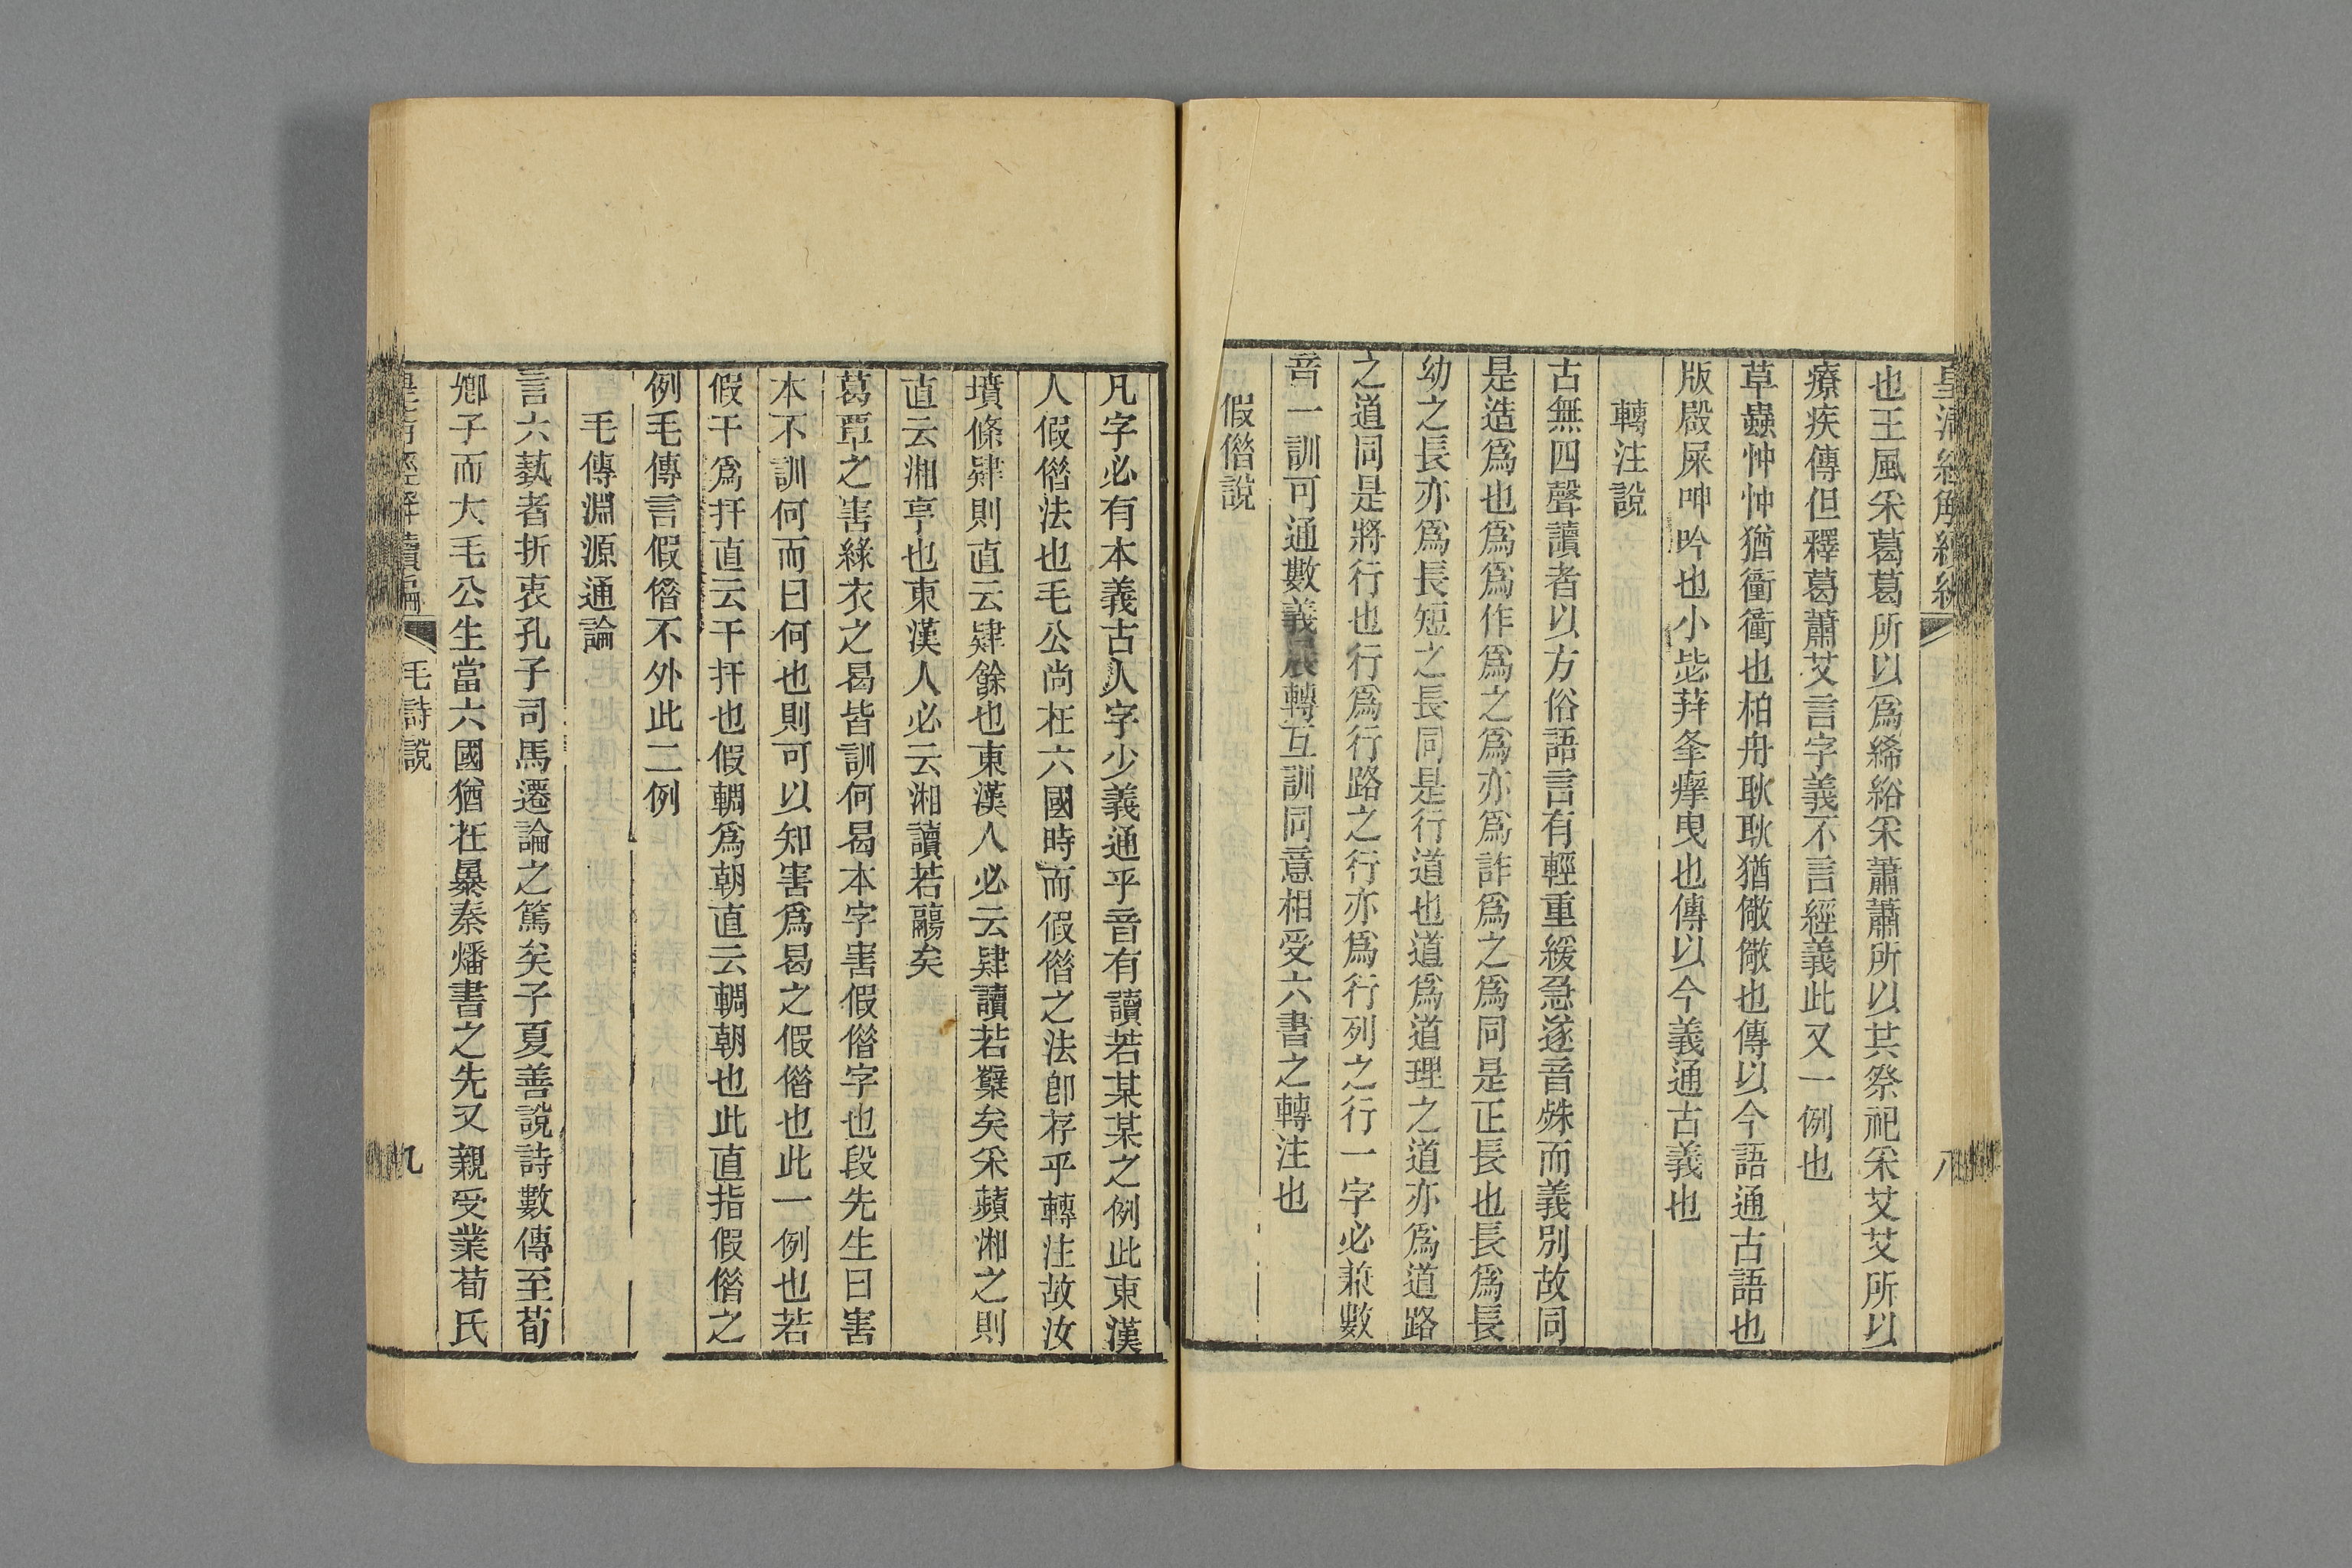 皇清經解續編 八
也王風采葛葛所以爲絺綌采蕭蕭所以共祭祀采艾艾所以
療疾傳但釋葛蕭艾言字義不言經義此又一例也
草蟲忡忡猶衝衝也柏舟耿耿猶儆儆也傳以今語通古語也
版殿屎呻吟也小毖荓夆瘳曳也傳以今義通古義也
轉注說
古無四聲讀者以方俗語言有輕重緩急遂音殊而義別故同
是造爲也爲爲作爲之爲亦爲詐爲之爲同是正長也長爲長
幼之長亦爲長短之長同是行道也道爲道理之道亦爲道路
之道同是將行也行爲行路之行亦爲行列之行一字必兼數
音一訓可通數義展轉互訓同意相受六書之轉注也
假偺說
凡字必有本義古人字少義通乎音有讀若某某之例此東漢
人假偺法也毛公尚在六國時而假偺之法卽存乎轉注故汝
墳條肄則直云肄餘也東漢人必云肄讀若櫱矣采蘋湘之則
直云湘亨也東漢人必云湘讀若鬺矣
葛覃之害綠衣之曷皆訓何曷本字害假偺字也段先生曰害
本不訓何而曰何也則可以知害爲曷之假偺也此一例也若
假干爲扞直云干扞也假輖爲朝直云輖朝也此直指假偺之
例毛傳言假偺不外此二例
毛傳淵源通論
言六蓺者折衷孔子司馬遷論之篤矣子夏善說詩數傳至荀
鄉子而大毛公生當六國猶在暴秦燔書之先又親受業荀氏
皇清經解續編 毛詩說 九